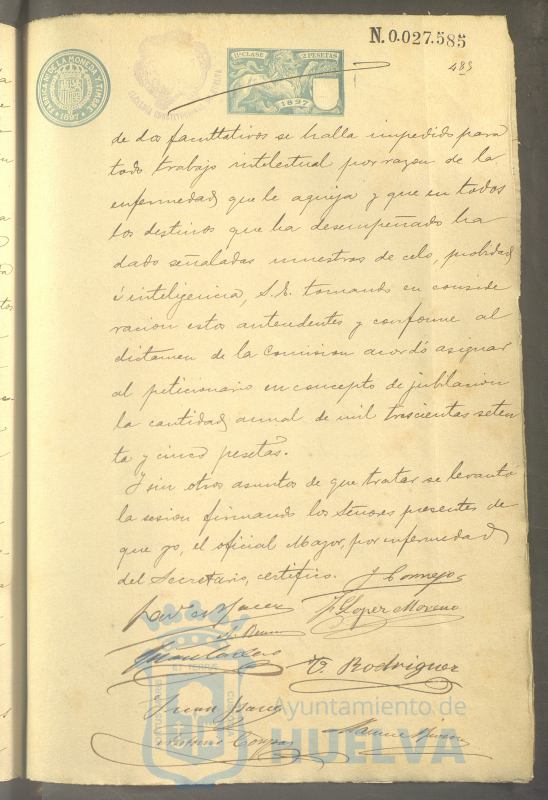 N. 0.027.585
FABRICA N. DE LA MONEDA Y TIMBRE
1897
11ª CLASE 2 PESETAS
1897
483
de dos facultativos se halla impedido para
todo trabajo intelectual por razon de la
enfermedad que le aqueja y que en todos
los destinos que ha desempeñado ha
dado señaladas muestras de celo, probidad
é inteligencia, S. E. tomando en conside
racion estos antecedentes y conforme al
dictamen de la Comision acordó asignar
al peticionario en concepto de jubilacion
la cantidad anual de mil trescientas seten
ta y cinco pesetas.
Y sin otros asuntos de que tratar se levantó
la sesion firmando los Señores presentes de
que yo, el oficial Mayor, por enfermedad
del Secretario, certifico. J Cornejo
F Lopez Moreno
T. Rodriguez
Juan
Ayuntamiento de
HUELVA